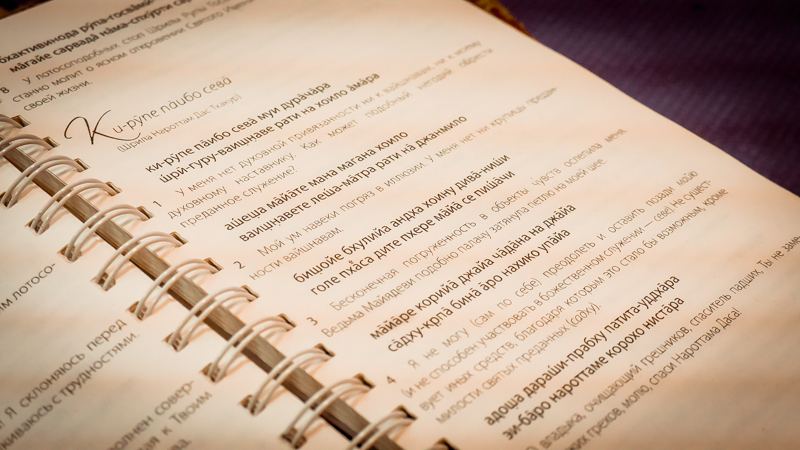 бхактивинода рӯпа-госва̄ми
ма̄гайе сарвада̄ на̄ма-спхӯрти са̄р
8 У лотосоподобных стоп Шрилы Рупы
станно молит о ясном откровении Святого Имени
своей жизни.
Ки-рӯпе па̄ибо сева̄
(Шрила Нароттам Дас Тхакур)
ки-рӯпе па̄ибо сева̄ муи дура̄ча̄ра
ш́рӣ-гуру-ваиш̣н̣аве рати на̄ хоило а̄ма̄ра
1 У меня нет духовной привязанности ни к вайшнавам, ни к моему
духовному наставнику. Как может подобный негодяй обрести
преданное служение?
аш́еша ма̄йа̄те мана магана хоило
ваиш̣н̣авете леш́а-ма̄тра рати на̄ джанмило
2 Мой ум навеки погряз в иллюзии. У меня нет ни крупицы предан-
ности вайшнавам.
биш̣ойе бхулийа̄ андха хоину дива̄-ниш́и
голе пха̐са дите пхере ма̄йа̄ се пиш́а̄чӣ
3 Бесконечная погруженность в объекты чувств ослепила меня.
Ведьма Майядеви подобно палачу затянула петлю на моей шее.
ма̄йа̄ре корийа̄ джайа чха̄д̣а̄на на̄ джа̄йа
са̄дху-кр̣па̄ бина̄ а̄ро на̄хико упа̄йа
4 Я не могу (сам по себе) преодолеть и оставить позади майю
(и не способен участвовать в божественном служении — севе). Не сущест-
вует иных средств, благодаря которым это стало бы возможным, кроме
милости святых преданных (садху).
адош̣а-дараш́и-прабху патита-уддха̄ра
эи-ба̄ро нароттаме корохо ниста̄ра
владыка, очищающий грешников, спаситель падших, Ты не заме-
грехов, молю, спаси Нароттама Даса!
ым лотосо-
Я склоняюсь перед
живаюсь с трудностями.
полнен совер-
к Твоим